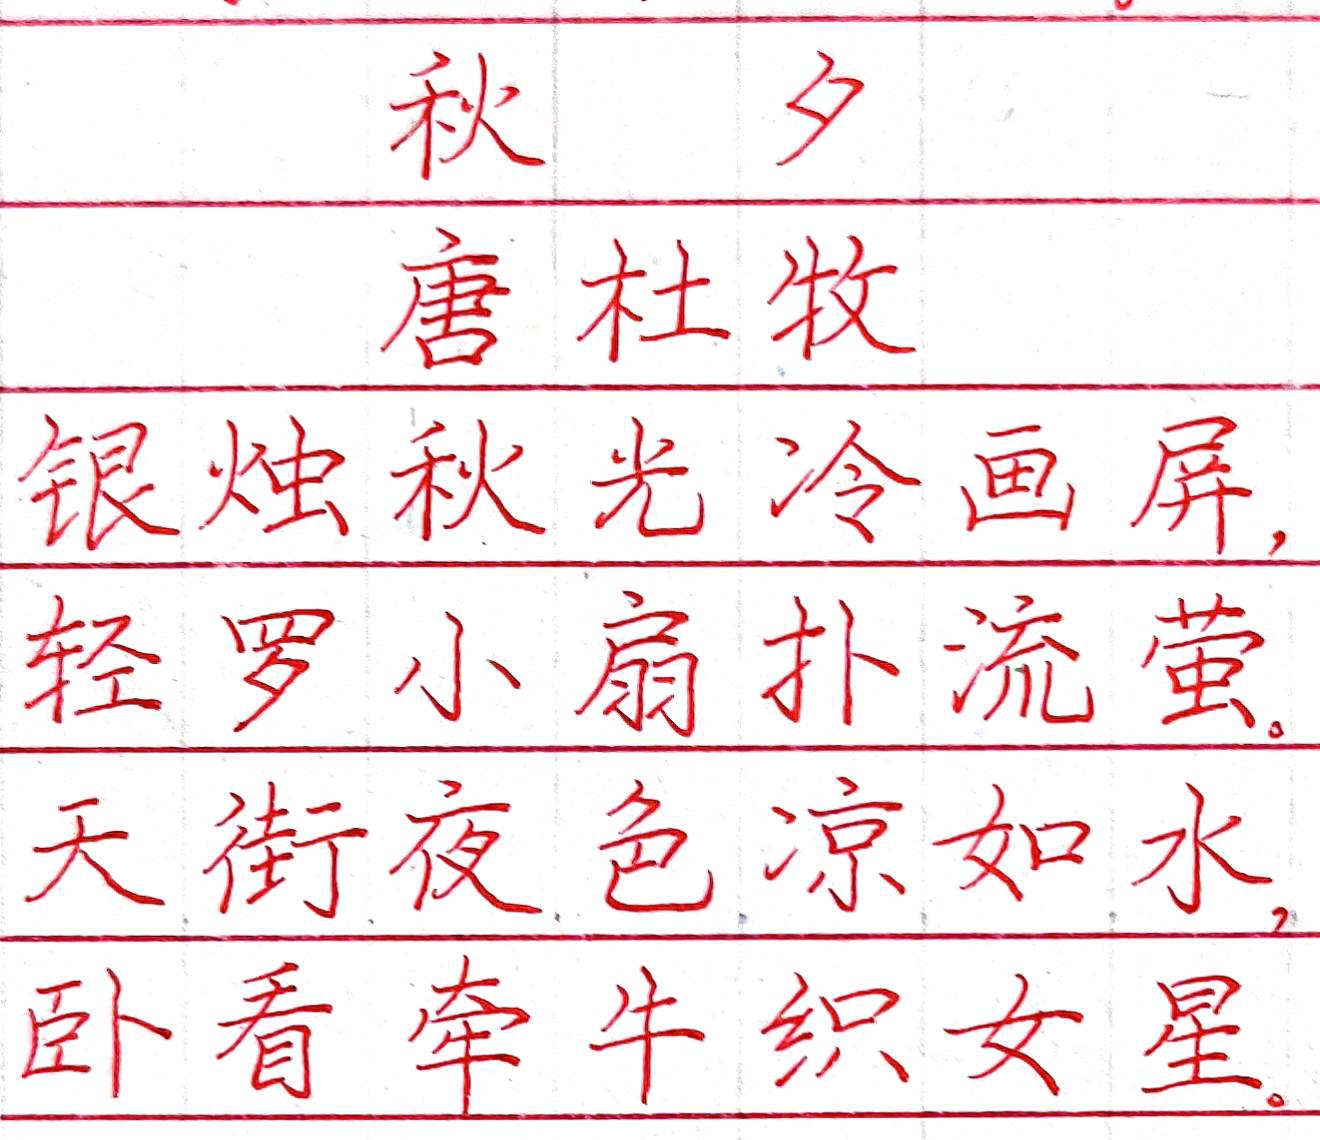 秋夕
唐杜牧
银烛秋光冷画屏，
轻罗小扇扑流萤。
天街夜色凉如水，
卧看牵牛织女星。